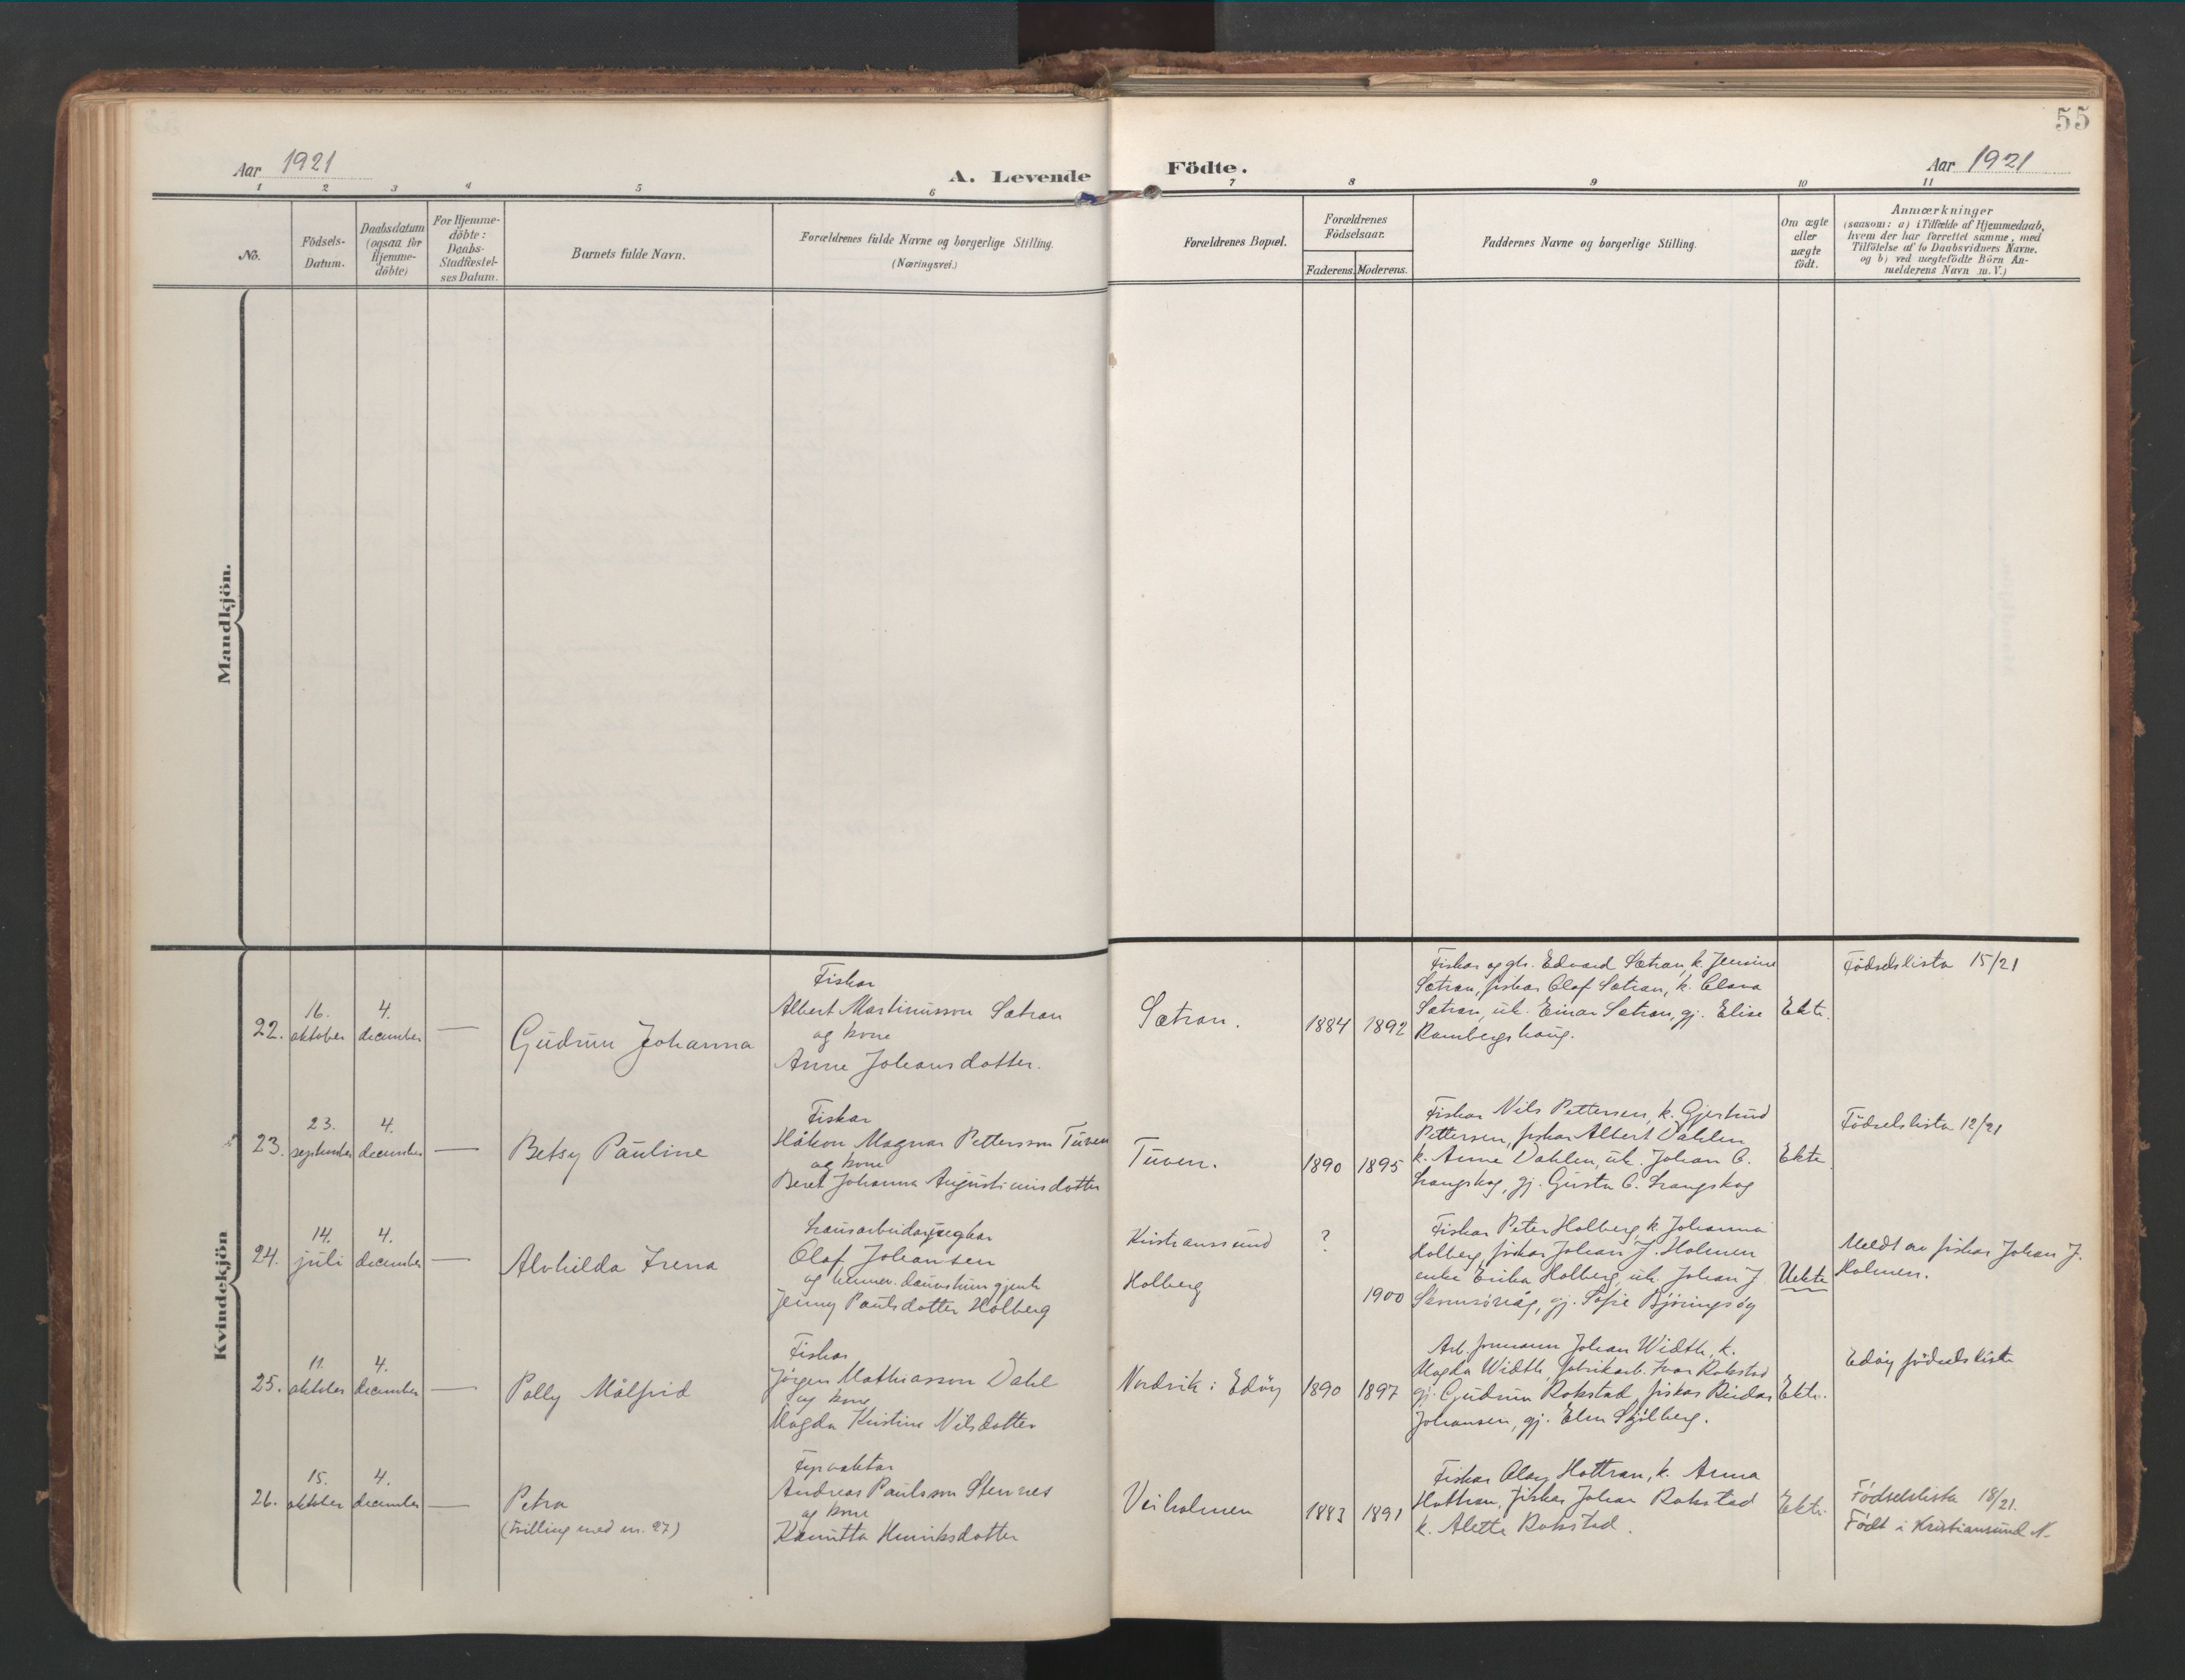 55
Aar 1921
A. Levende
Födte.
Aar 1921
1 2 3 4 5 6 7 8 9 10 11
No.
Födsels-
Datum.
Daabsdatum
(ogsaa for
Hjemme-
döbte)
For Hjemme-
döbte:
Daabs-
Stadfæstel-
ses Datum.
Barnets fulde Navn.
Forældrenes fulde Navne og borgerlige Stilling.
(Næringsvei.)
Forældrenes Bopæl.
Forældrenes
Födselsaar.
Faderens. Moderens.
Faddernes Navne og borgerlige Stilling.
Om ægte
eller
uægte
födt.
Anmærkninger
(saasom: a) i Tilfælde af Hjemmedaab,
hvem der har forrettet samme, med
Tilföielse af to Daabsvidners Navne.
og b) ved uægtefödte Börn An-
melderens Navn m. V.)
Mandkjön.
Kvindekjön
22.
16.
oktober
4.
december
—
Gudrun Johanna
Fiskar
Albert Martinusson Sætran
og kone
Anne Johansdotter.
Sætran.
1884
1892
Fiskar og gbr. Edvard Sætran, k. Jensine
Sætran, fiskar Olaf Sætran, k. Clara
Sætran, uk. Einar Sætran, gj. Elise
Rambergshaug.
Ekte.
Födselslista 15/21
23.
23.
september
4.
december
—
Betsy Pauline
Fiskar
Håkon Magnar Pettersson Tuven
og kone
Beret Johanna Augustinusdotter
Tuven.
1890
1895
Fiskar Nils Pettersen, k. Gjertrud
Pettersen, fiskar Albert Dahlen
k. Anne Dahlen, uk. Johan C.
Langskog, gj. Gusta C. Langskog
Ekte.
Födselslista 12/21
24.
14.
juli
4.
december
—
Alvhilda Irena
Olaf Johansen
og gjente
Jenny Paulsdotter Holberg
Kristianssund
Holberg
?
1900
Fiskar Peter Holberg, k. Johanna
Holberg, fiskar Johan J. Holmen
enke Erika Holberg, uk. Johan J.
gj. Sofie
Uekte
Meldt av fiskar Johan J.
Holmen.
25.
11.
oktober
4.
december
—
Polly Målfrid
Fiskar
Jörgen Mathiasson Dahl
og kone
Magda Kristine Nilsdotter
Nordvik i Edöy
1890
1897
Arb. formann Johan Width, k.
Magda Width, fabrikarb. Ivar Rokstad
gj. Gudrun Rokstad, fiskar Reidar
Johansen, gj. Elen Skjölberg.
Ekte.
Edöy födselsliste
26.
15.
oktober
4.
december
—
Petra
(tvilling med nr. 27)
Fyrvaktar
Andreas Paulsson Stennes
og kone
Kanutta Henriksdotter
Veiholmen
1883
1891
Fiskar Olav Hattran, k. Anna
Hattran, fiskar Johan Rokstad
k. Alette Rokstad.
Ekte.
Födselslista 18/21.
Födt i Kristiansund N.